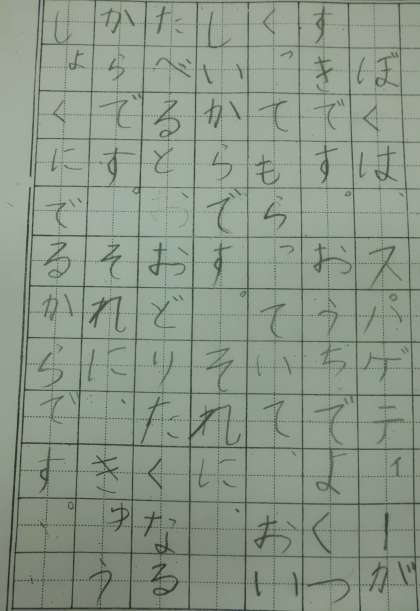 ぼくは、スパゲティーが
すきです。おうちでよくつ
くってもらっていて、おい
しいからです。それに、
たべるとおどりたくなる
からです。それに、きゅう
しょくにでるからです。